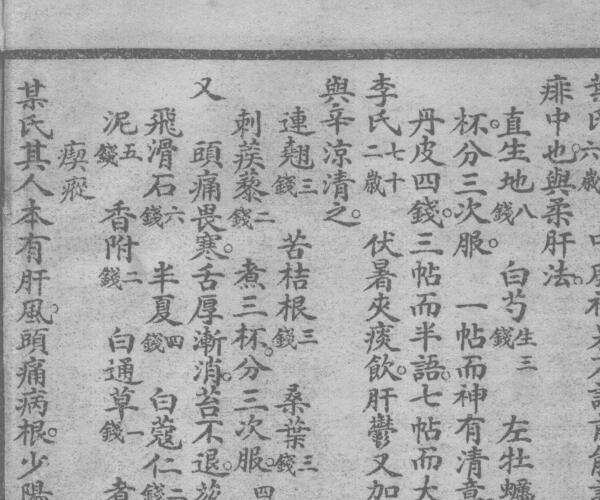 葉氏六歲
痱中也。與柔肝法。
直生地八錢　白芍生三錢　左牡蠣
杯。分三次服。　一帖而神有清意
丹皮四錢。三帖而半語。七帖而大
李氏七十二歲　伏暑夾痰飲。肝鬱又加
與辛涼清之。
連翹三錢　苦桔根三錢　桑葉三錢
刺蒺藜二錢　煮三杯。分三次服。四
又　頭痛畏寒。舌厚漸消。苔不退。
飛滑石六錢　半夏四錢　白蔻仁二錢
泥五錢　香附二錢　白通草一錢　煮
瘈瘲
某氏其人本有肝風。頭痛病根。少陽